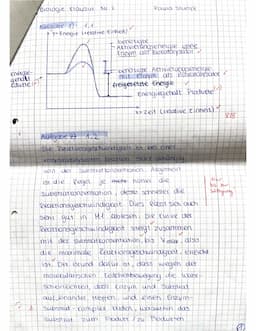 Biologie Klausur Nr. 2
Aufgabe 1) 1.1
y = Energie (relative Einheit)
benötigte
Aktivierungsenergie ohne
Enzym als Biokatalysator
benötigte Aktivierungsenergie
mit Enzym als Biokatalysator
freigesetzte Energie
Energiegehalt Produkte
x = Zeit (relative Einheit)
8/8
Aufgabe 1.2
Die Reaktionsgeschwindigkeit ist bei einer
von der Substratkonzentration. Allgemein
ist die Regel je höher die
Substratkonzentration, desto schneller die
Reaktionsgeschwindigkeit. Dies lässt sich auch
sehr gut in M1 ablesen. Die Kurve der
Reaktionsgeschwindigkeit steigt zusammen
mit der Substratkonzentration, bis Vmax, also
die maximale Reaktionsgeschwindigkeit, erreicht
ist. Der Grund dafür ist, dass wegen der
Teilchenbewegung die
, dass Enzym und Substrat
aufeinander treffen und einen Enzym-
Substrat-Komplex bilden, woraufhin das
Substrat zum Produkt / zu Produkten